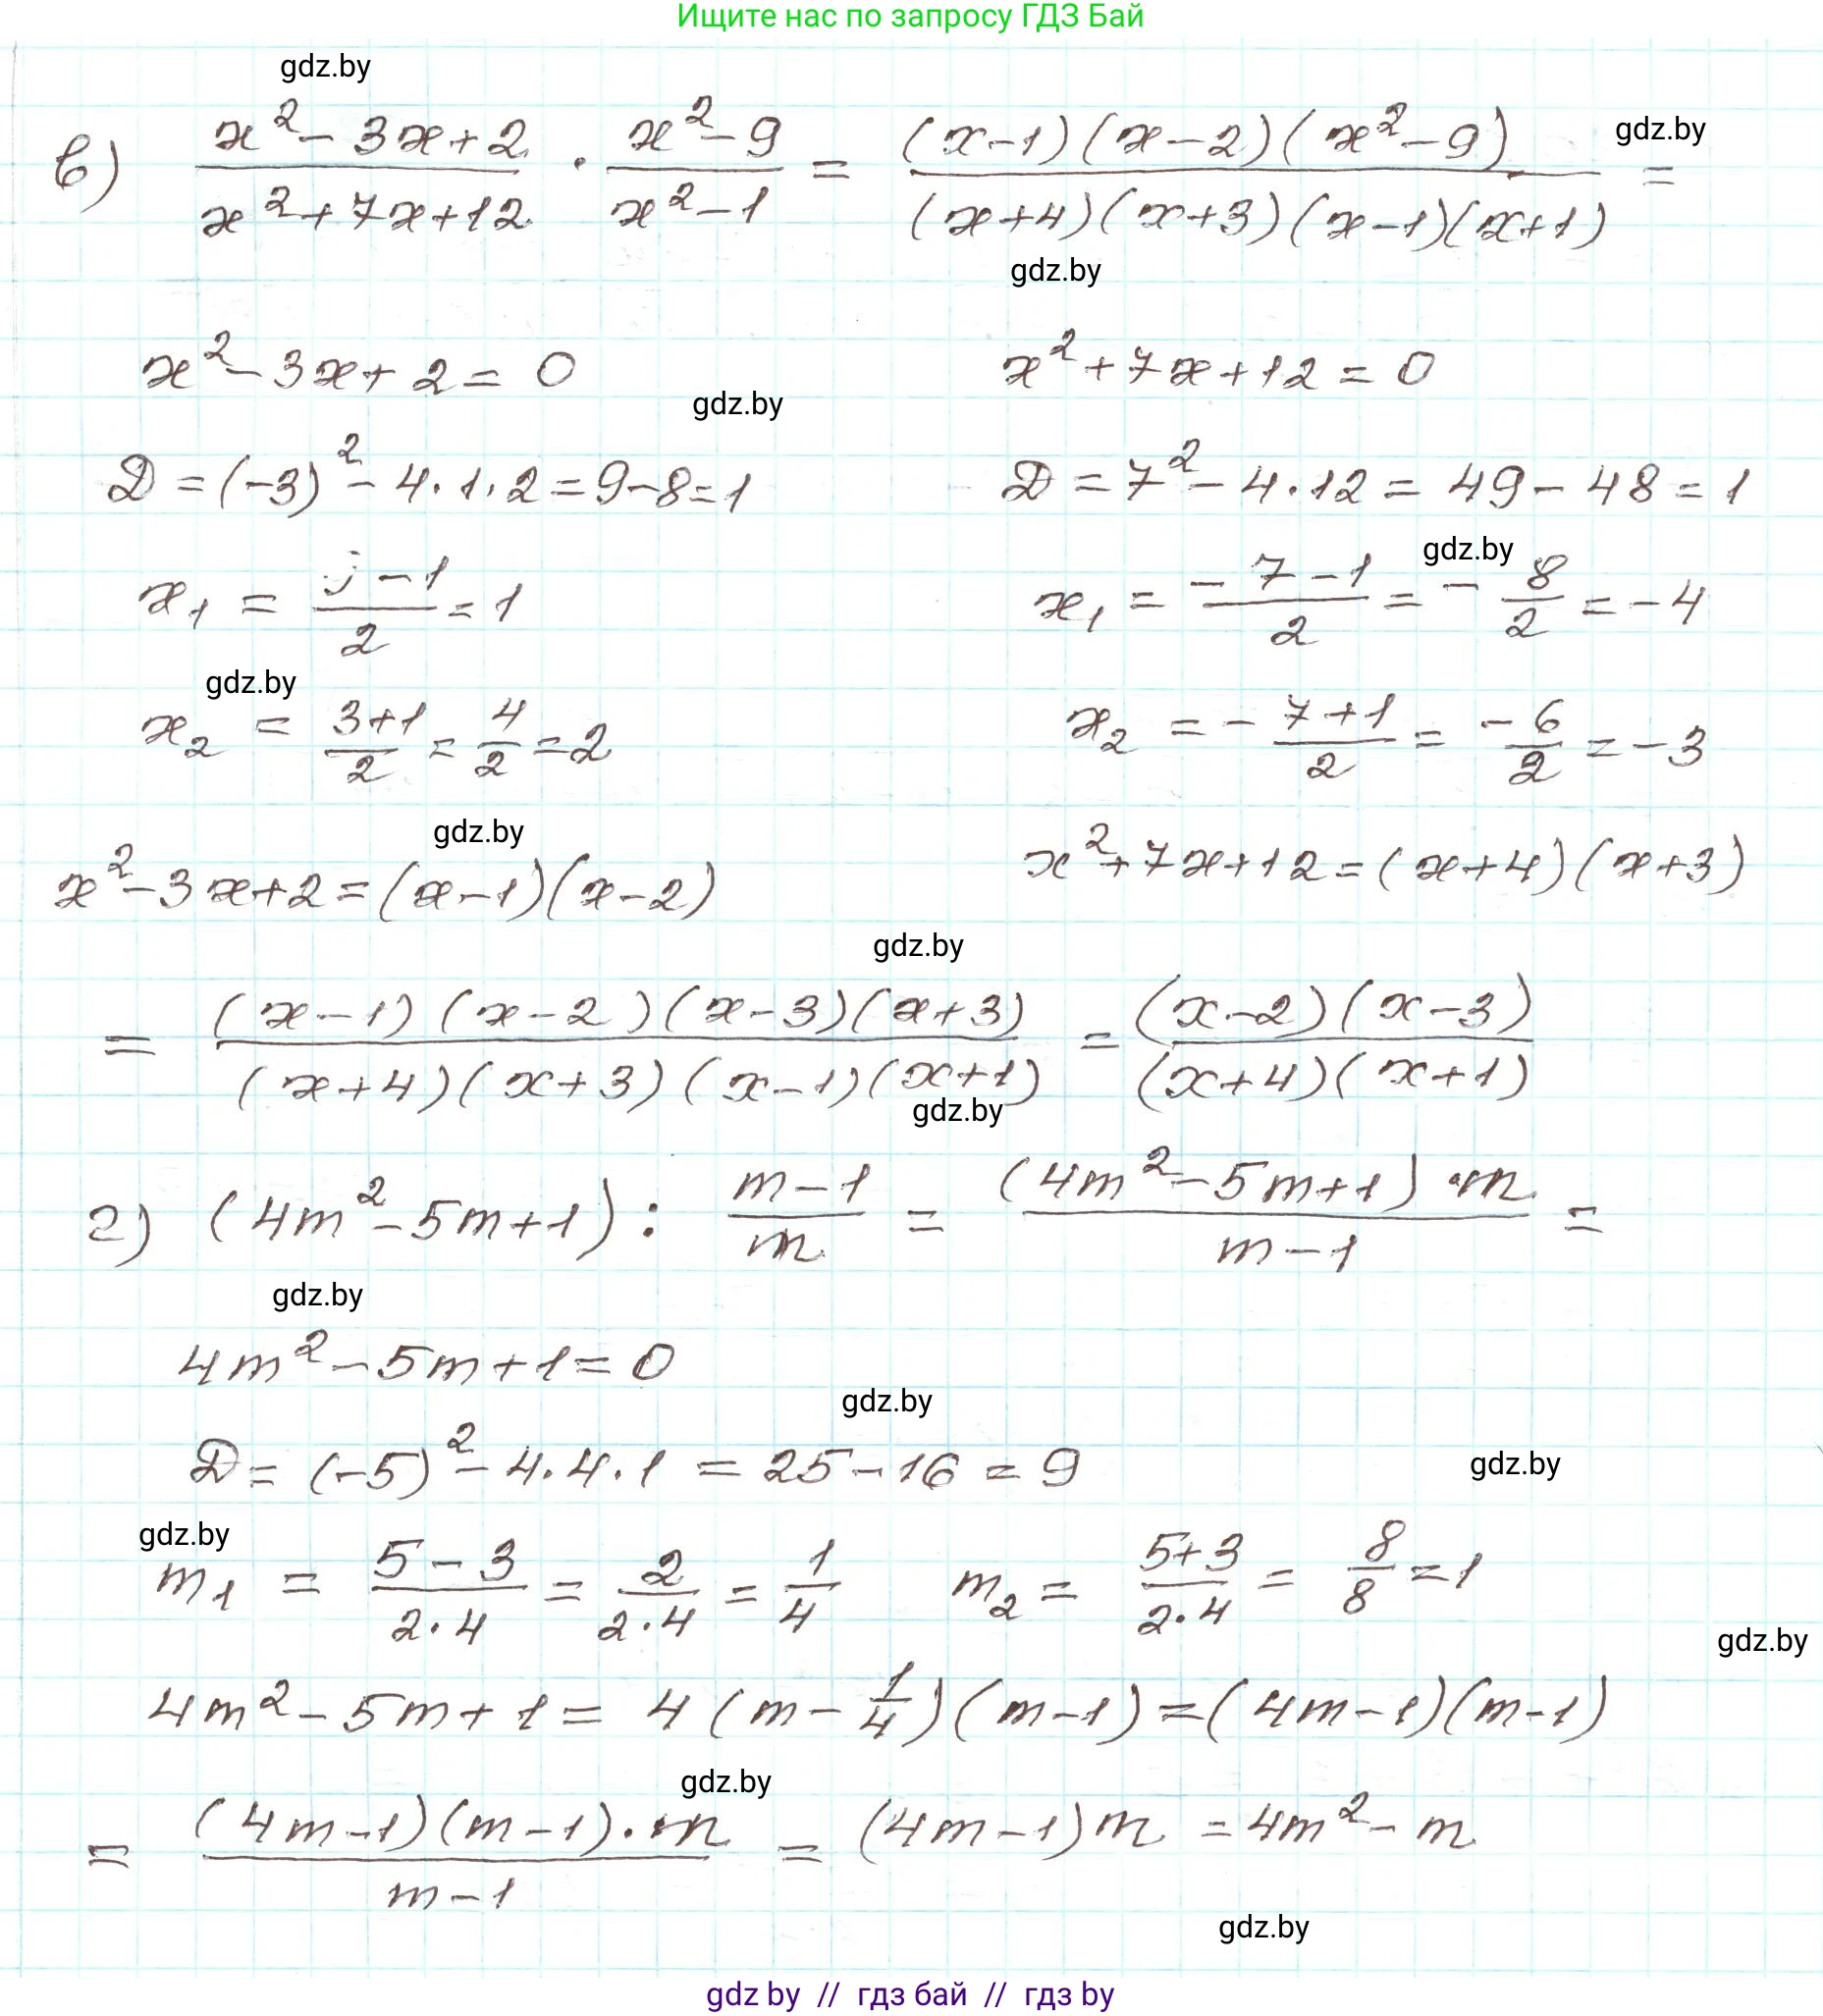 Ищите нас по запросу ГДЗ Бай
gdz.by
в) (x² - 3x + 2)/(x² + 7x + 12) · (x² - 9)/(x² - 1) = ((x-1)(x-2)(x²-9))/((x+4)(x+3)(x-1)(x+1)) =
gdz.by
gdz.by
x² - 3x + 2 = 0
x² + 7x + 12 = 0
gdz.by
D = (-3)² - 4·1·2 = 9-8=1
D = 7² - 4·12 = 49 - 48 = 1
gdz.by
x₁ = (3-1)/2 = 1
x₁ = (-7-1)/2 = - 8/2 = -4
gdz.by
x₂ = (3+1)/2 = 4/2 = 2
x₂ = - (7+1)/2 = (-6)/2 = -3
gdz.by
x² - 3x + 2 = (x-1)(x-2)
x² + 7x + 12 = (x+4)(x+3)
gdz.by
= ((x-1)(x-2)(x-3)(x+3))/((x+4)(x+3)(x-1)(x+1)) = ((x-2)(x-3))/((x+4)(x+1))
gdz.by
г) (4m² - 5m + 1) : (m-1)/m = ((4m² - 5m + 1)·m)/(m-1) =
gdz.by
4m² - 5m + 1 = 0
gdz.by
D = (-5)² - 4·4·1 = 25 - 16 = 9
gdz.by
gdz.by
m₁ = (5-3)/(2·4) = 2/(2·4) = 1/4
m₂ = (5+3)/(2·4) = 8/8 = 1
gdz.by
4m² - 5m + 1 = 4(m - 1/4)(m-1) = (4m-1)(m-1)
gdz.by
= ((4m-1)(m-1)·m)/(m-1) = (4m-1)m = 4m² - m
gdz.by
gdz by // гдз бай // гдз by